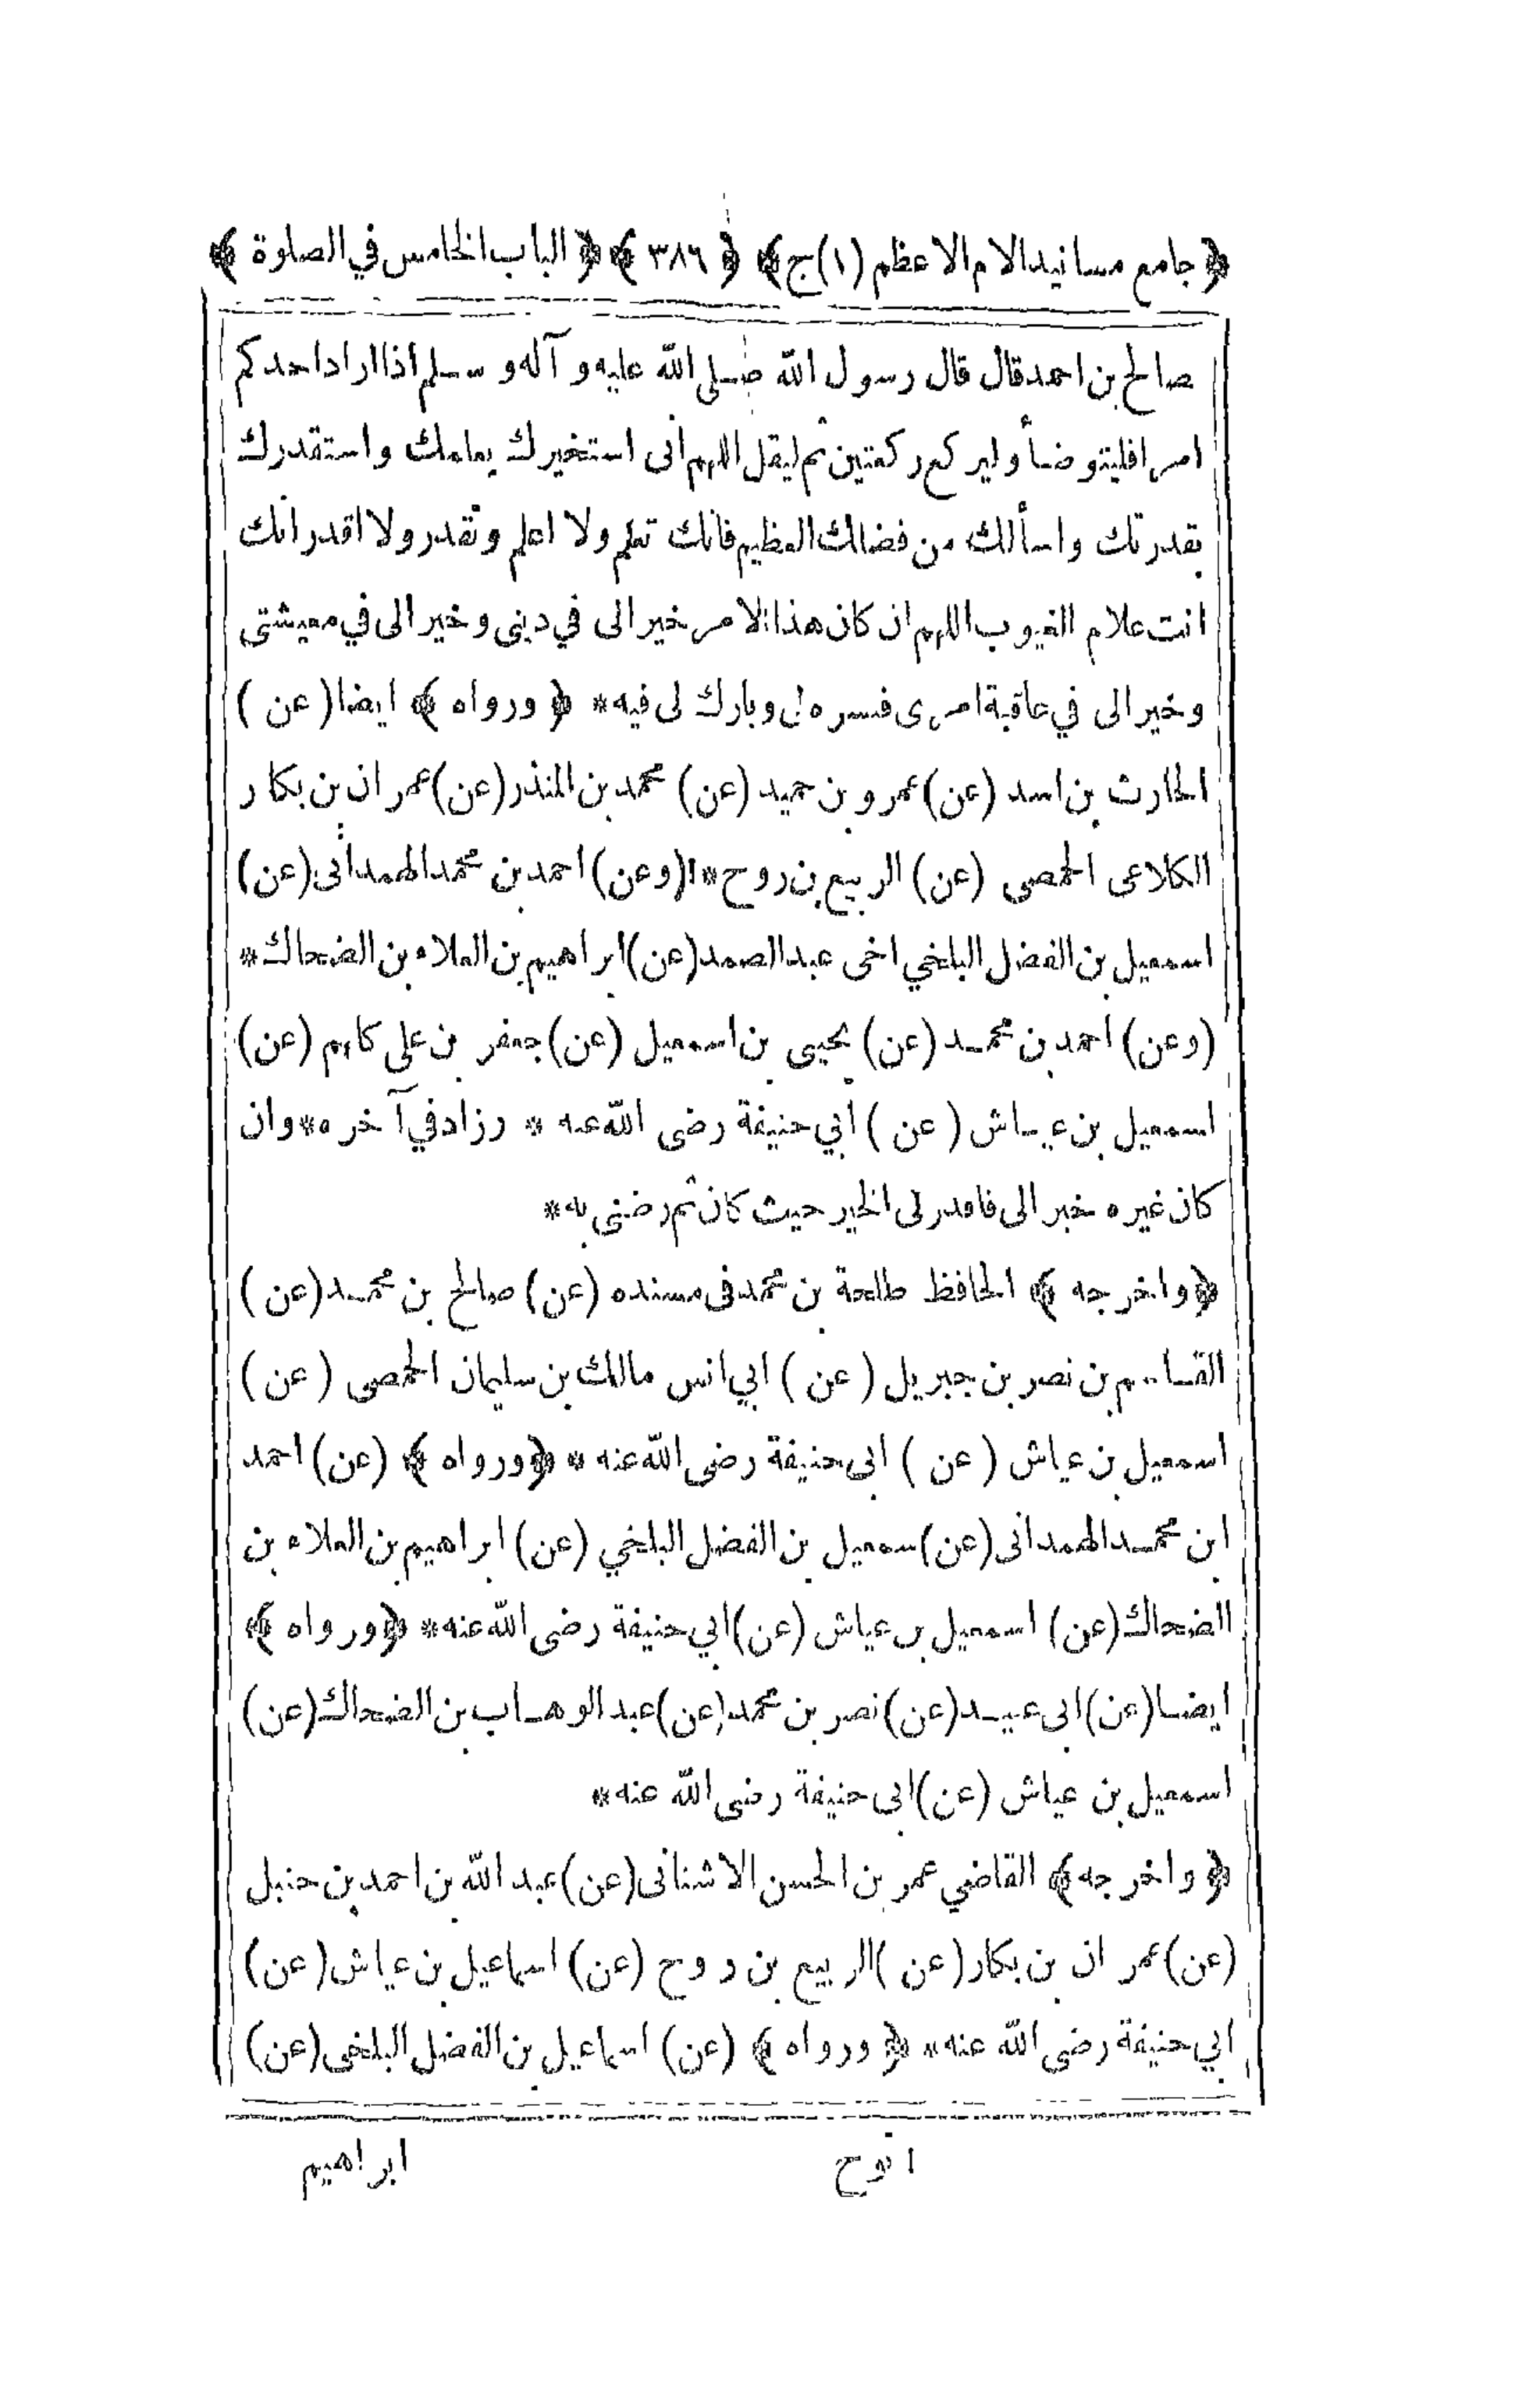 ﴿ جامع مسانيد الامام الاعظم (١)ج﴾ ﴿ ٣٨٦ ﴾ ﴿ الباب الخامس في الصلوة ﴾
صالح بن احمد قال قال رسول الله صلى الله عليه و آله و سلم اذا اراد احدكم
امرا فليتوضأ وليركع ركعتين ثم ليقل اللهم انى استخيرك بعلمك واستقدرك
بقدرتك واسألك من فضلك العظيم فانك تعلم ولا اعلم وتقدر ولا اقدر انك
انت علام الغيوب اللهم ان كان هذا الامر خيرا لى في دينى وخيرا لى في معيشتى
وخيرا لى في عاقبة امرى فيسره لى وبارك لى فيه* ﴿ ورواه ﴾ ايضا (عن)
الحارث بن اسد (عن) عمرو بن حميد (عن) محمد بن المنذر (عن) عمران بن بكار
الكلاعى الحمصى (عن) الربيع بن روح*١ (وعن) احمد بن محمد الهمدانى (عن)
اسمعيل بن الفضل البلخي اخى عبد الصمد (عن) ابراهيم بن العلاء بن الضحاك*
(وعن) احمد بن محمد (عن) يحيى بن اسمعيل (عن) جعفر بن على كلهم (عن)
اسمعيل بن عياش (عن) أبي حنيفة رضى الله عنه * وزاد في آخره* وان
كان غيره خيرا لى فاقدر لى الخير حيث كان ثم رضنى به*
﴿ واخرجه ﴾ الحافظ طلحة بن محمد فى مسنده (عن) صالح بن محمد (عن)
القاسم بن نصر بن جبريل (عن) ابي انس مالك بن سليمان الحمصى (عن)
اسمعيل بن عياش (عن) ابى حنيفة رضى الله عنه * ﴿ورواه ﴾ (عن) احمد
ابن محمد الهمدانى (عن) سمعيل بن الفضل البلخي (عن) ابراهيم بن العلاء بن
الضحاك (عن) اسمعيل بن عياش (عن) ابي حنيفة رضى الله عنه* ﴿ورواه ﴾
ايضا (عن) ابى عبيد (عن) نصر بن محمد (عن) عبد الوهاب بن الضحاك (عن)
اسمعيل بن عياش (عن) ابى حنيفة رضى الله عنه*
﴿ واخرجه ﴾ القاضي عمر بن الحسن الاشنانى (عن) عبد الله بن احمد بن حنبل
(عن) عمران بن بكار (عن) الربيع بن روح (عن) اسماعيل بن عياش (عن)
ابي حنيفة رضى الله عنه* ﴿ ورواه ﴾ (عن) اسماعيل بن الفضل البلخى (عن)
١ نوح
ابراهيم